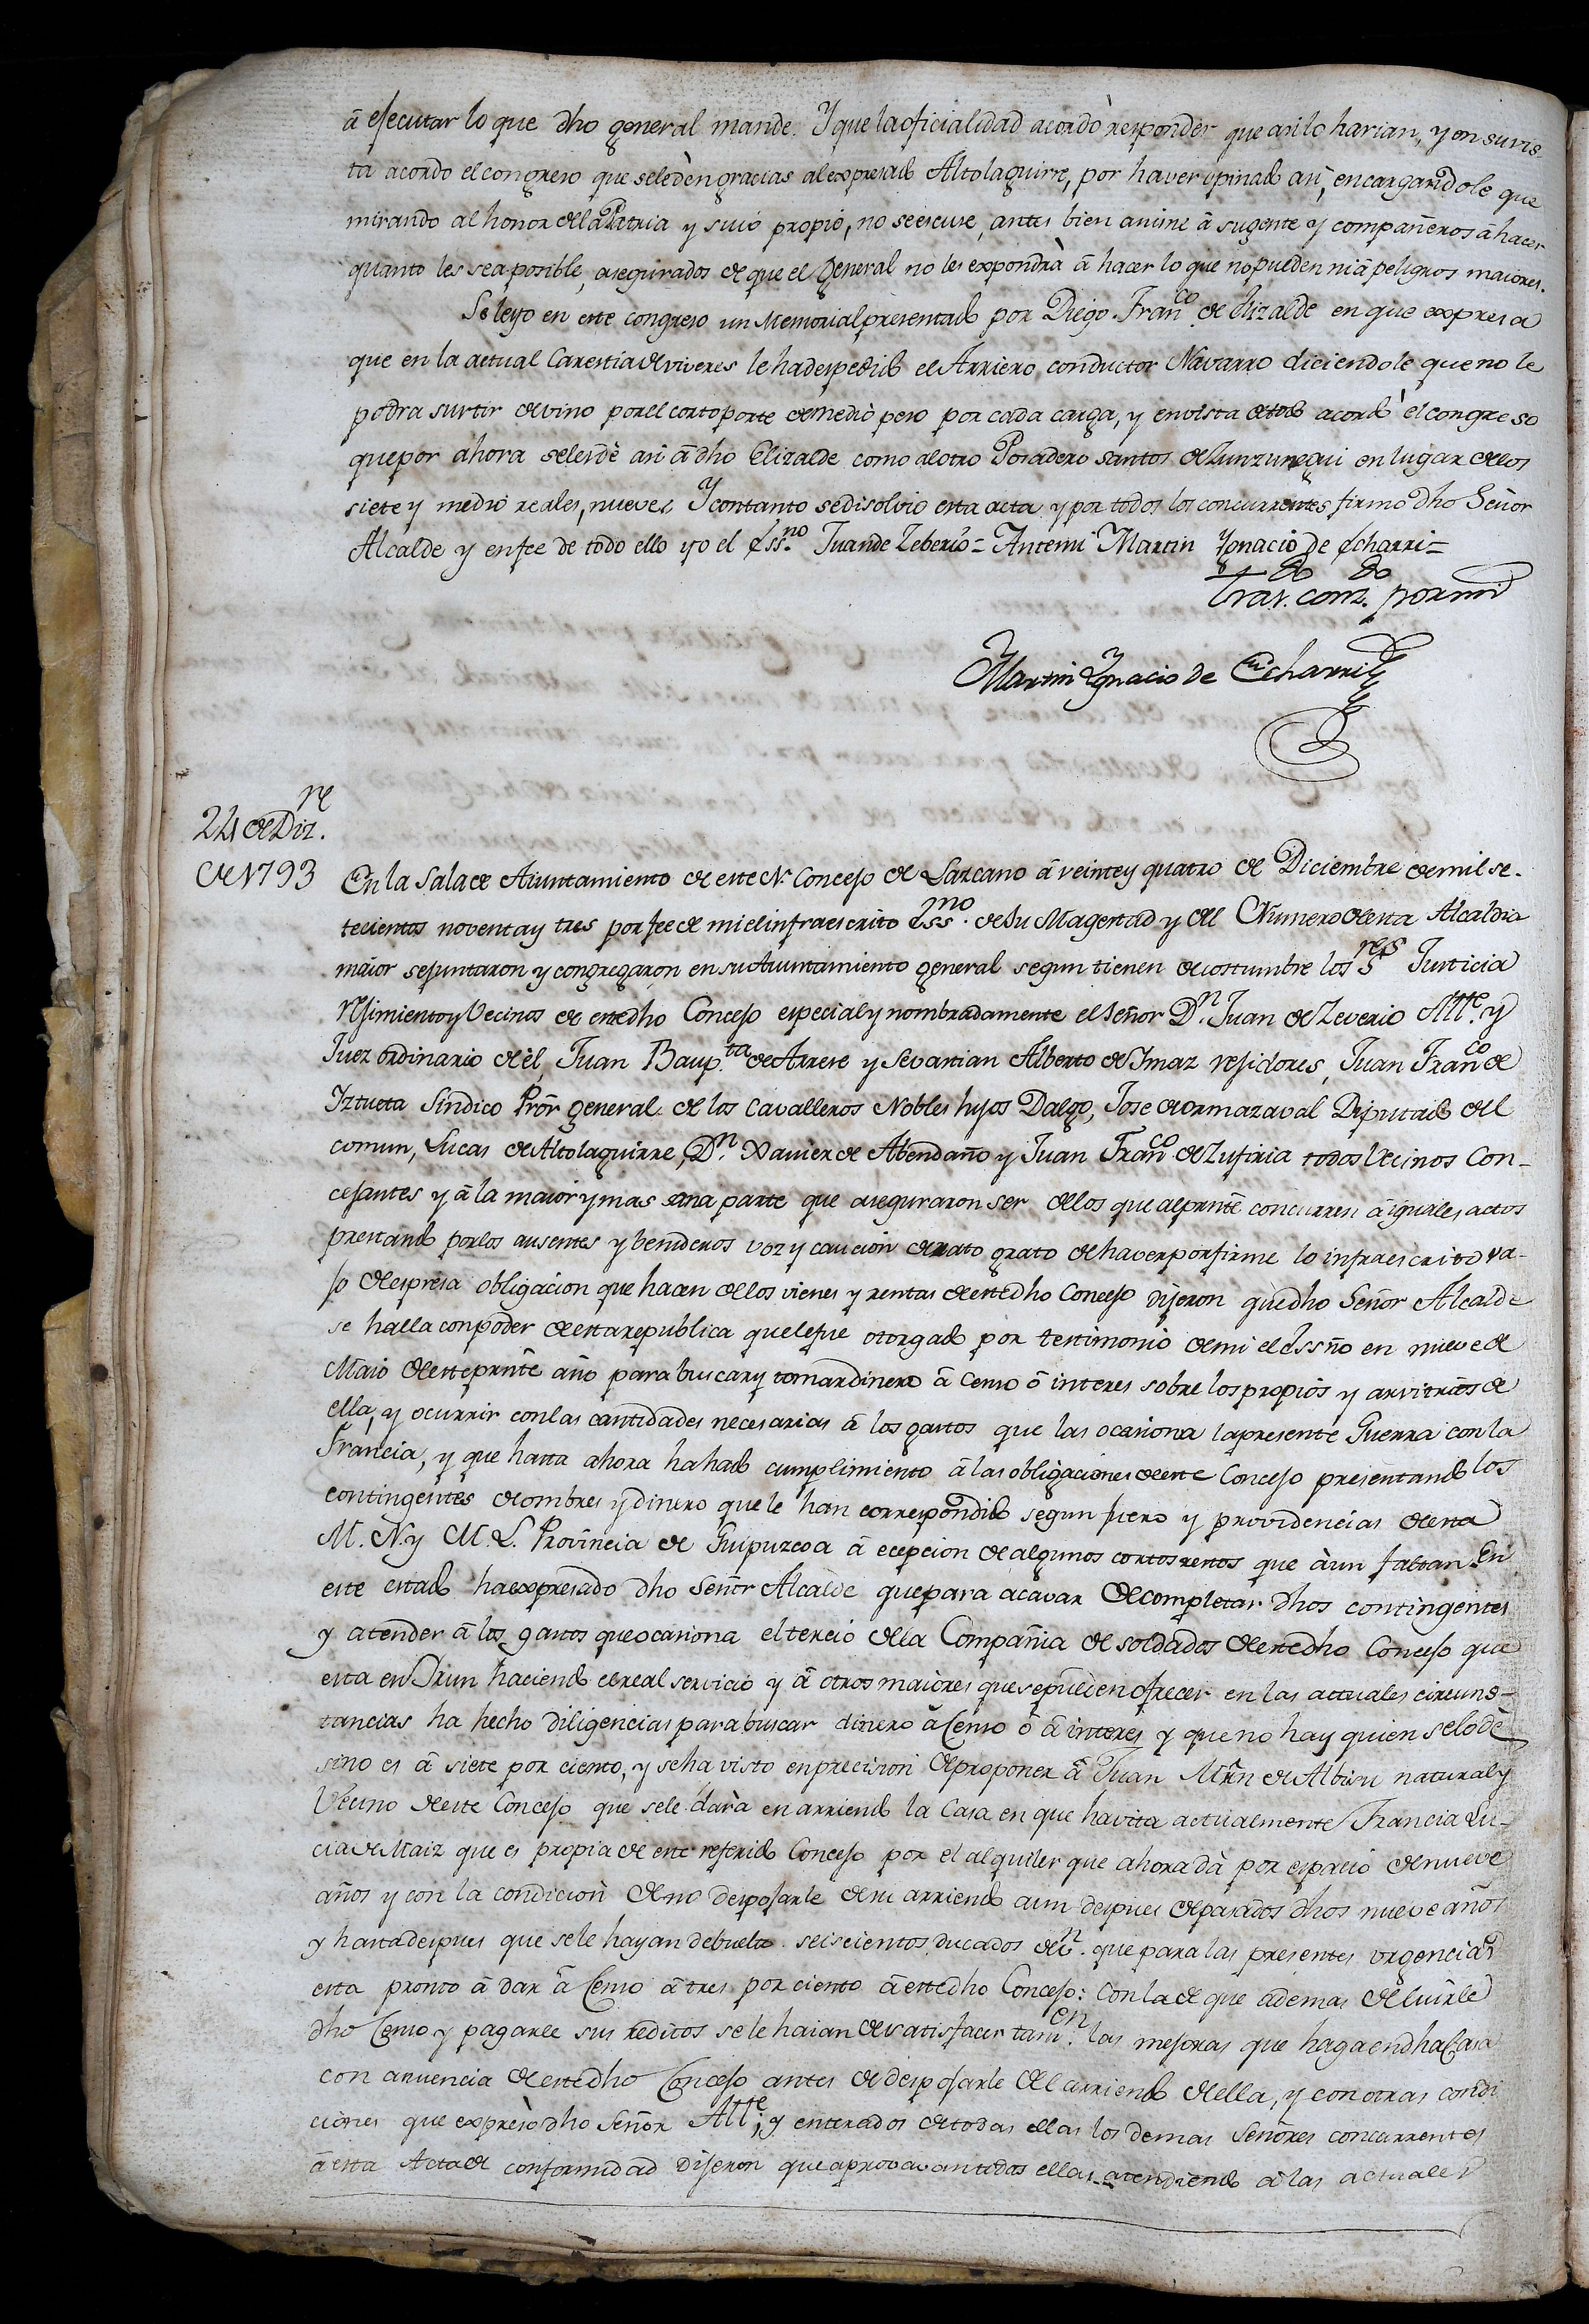 â ejecutar lo que dho general mande. Y que la oficialidad acordò responder que asi lo harian, y en su vis-
ta acordo el congreso que se le dèn gracias al expresado Altolaguirre, por haver opinado asi, encargandole que
mirando al honor de la Patria y suio propio, no se escuse, antes bien anime â su gente y compañeros â hacer
quanto les sea posible, asegurados de que el General no les expondrà â hacer lo que no pueden ni â peligros maiores.
Se leyo en este congreso un Memorial presentado por Diego Franco de Elizalde en que expresa
que en la actual Carestia de viveres le ha despedido el Arriero conductor Navarro diciendole que no le
podra surtir de vino por el corto porte de medio peso por cada carga, y en vista de todo acordò el congreso
que por ahora se les dè asi â dho Elizalde como al otro Posadero Santos de Zunzunegui en lugar de los
siete y medio reales, nueve. Y con tanto se disolvio esta acta y por todos los concurrentes firmò dho Señor
Alcalde y en fee de todo ello yo el Essno Juan de Zeberio = Antemi Martin Ygnacio de Echarri =
por mi
Martin Ygnacio de Echarri
24 de Dizre
de 1793
En la Sala de Aiuntamiento de este N. Concejo de Lazcano â veinte y quatro de Diciembre de mil se-
tecientos noventa y tres por fee de mi el infraescrito Essno. de Su Magestad y del Numero de esta Alcaldia
maior se juntaron y congregaron en su Aiuntamiento general segun tienen de costumbre los Sres Justicia
rejimiento y Vecinos de este dho Concejo especial y nombradamente el Señor Dn. Juan de Zeverio Alle. y
Juez ordinario de èl, Juan Baupta de Arrese y Sevastian Alberto de Ymaz rejidores, Juan Franco de
Iztueta Sindico Prôr general de los Cavalleros Nobles hijos Dalgo, Jose de Ormazaval Diputado del
comun, Lucas de Altolaguirre, Dn. Xavier de Abendaño y Juan Franco de Zufiria todos Vecinos Con-
cejantes y â la maior y mas sana parte que aseguraron ser de los que al prnte concurren â iguales actos
prestando por los ausentes y benideros voz y caucion de rato grato de haver por firme lo infraescrito va-
jo de espresa obligacion que hacen de los vienes y rentas de este dho Concejo dijeron que dho Señor Alcalde
se halla con poder de esta republica que le fue otorgado por testimonio de mi el Essño en nueve de
Maio de este prnte año para buscar y tomar dinero â Censo ô interes sobre los propios y arvitrios de
ella, y ocurrir con las cantidades necesarias â los gastos que las ocasiona la presente Guerra con la
Francia, y que hasta ahora ha dado cumplimiento â las obligaciones de este Concejo presentando los
contingentes de ombres y dinero que le han correspondido segun fuero y providencias de esta
M. N. y M. L. Provincia de Guipuzcoa â ecepcion de algunos cortos restos que àun faltan En
este estado ha expresado dho Señor Alcalde que para acavar de completar dhos contingentes
y atender â los gastos que ocasiona el tercio de la Compañia de soldados de este dho Concejo que
esta en Irun haciendo el real servicio y â otros maiores que se pueden ofrecer en las actuales circuns-
tancias ha hecho diligencias para buscar dinero â Censo ô â interes y que no hay quien se lo dè
sino es â siete por ciento, y se ha visto en precision de proponer â Juan Mrñ de Albisu natural y
Vecino de este Concejo que se le darà en arriendo la Casa en que havita actualmente Francisca Lu-
cia de Maiz que es propia de este referido Concejo por el alquiler que ahora dà por espacio de nueve
años y con la condicion de no despojarle de su arriendo aun despues de pasados dhos nueve años
y hasta despues que se le hayan debuelto seiscientos ducados de vn. que para las presentes urgencias
esta pronto â dar â Censo â tres por ciento â este dho Concejo: Con la de que ademas de luirle
dho Censo y pagarle sus reditos se le haian de satisfacer tamen. las mejoras que haga en dha Casa
con anuencia de este dho Concejo antes de despojarle del arriendo de ella, y con otras condi
ciones que expresò dho Señor Alle; y enterados de todas ellas los demas Señores concurrentes
â esta Acta de conformidad dijeron que aprovavan todas ellas atendiendo â las actuales